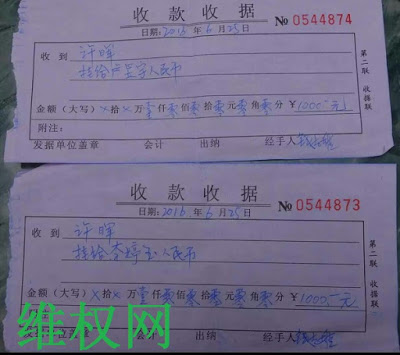 收款收据
日期:2016年6月25日
№0544874
收到 许晖
转给卢呈宇人民币
金额(大写)×拾×万壹仟零佰零拾零元零角零分 ¥1000元
附注:
发据单位盖章 会计 出纳 经手人
第二联 收据联
收款收据
日期:2016年6月25日
№0544873
收到 许晖
转给李婷玉人民币
金额(大写)×拾×万壹仟零佰零拾零元零角零分 ¥1000元
会计 出纳 经手人
第二联 收据联
维权网